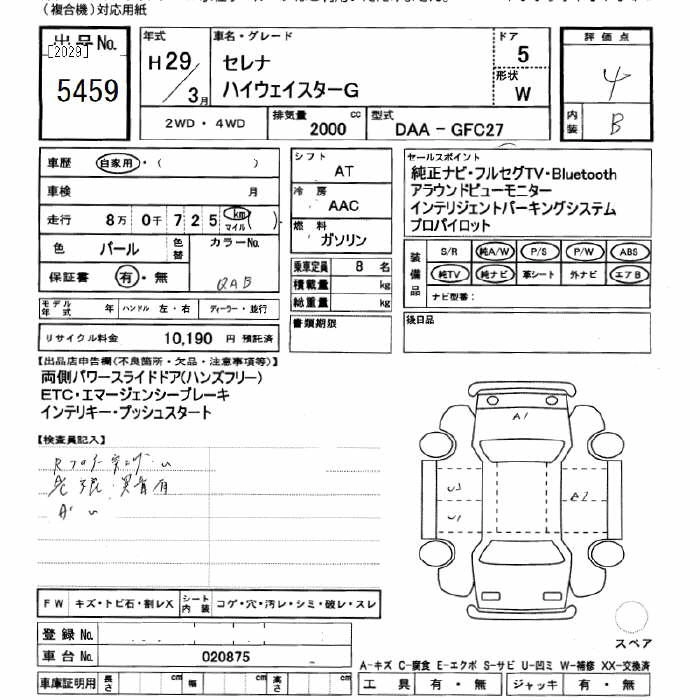 (複合機)対応用紙
出品No.
[2029]
5459
年式
H29/3月
車名・グレード
セレナ
ハイウェイスターG
ドア
5
形状
W
評価点
4
内装
B
2WD・4WD
排気量
2000 cc
型式
DAA - GFC27
車歴 自家用・( )
車検 月
走行 8万0千725 km マイル ( )
色 パール 色替
カラーNo.
QAB
保証書 有・無
モデル年式 年 ハンドル 左・右 ディーラー・並行
リサイクル料金 10,190 円 預託済
シフト
AT
冷房
AAC
燃料
ガソリン
乗車定員 8 名
積載量 kg
総重量 kg
書類期限
セールスポイント
純正ナビ・フルセグTV・Bluetooth
アラウンドビューモニター
インテリジェントパーキングシステム
プロパイロット
装備品
S/R 純A/W P/S P/W ABS
純TV 純ナビ 革シート 外ナビ エアB
ナビ型番:
後日品
【出品店申告欄(不良箇所・欠品・注意事項等)】
両側パワースライドドア(ハンズフリー)
ETC・エマージェンシーブレーキ
インテリキー・プッシュスタート
【検査員記入】
A1
U3
U1
A2
FW キズ・トビ石・割レX シート内装 コゲ・穴・汚レ・シミ・破レ・スレ
登録No.
車台No. 020875
車庫証明用 長さ cm 幅 cm 高さ cm
スペア
A-キズ C-腐食 E-エクボ S-サビ U-凹ミ W-補修 XX-交換済
工具 有・無 ジャッキ 有・無